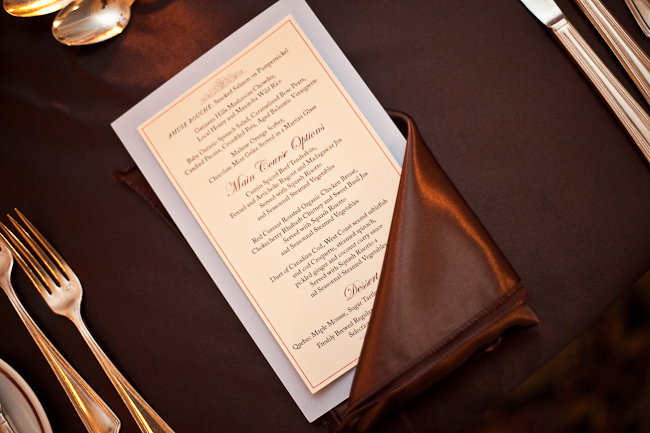 AMUSE BOUCHE: Smoked Salmon on Pumpernickel
Gatineau Hills Mushroom Chowder,
Local Honey and Manitoba Wild Rice
Baby Ontario Spinach Salad, Caramelized Bosc Pears,
Candied Pecans, Crumbled Feta, Aged Balsamic Vinaigrette
Maltese Orange Sorbet,
Chocolate Mint Gelee Served in a Martini Glass
Main Course Options
Cumin Spiced Beef Tenderloin,
Fennel and Artichoke Ragout and Madagascar Jus
Served with Squash Risotto
and Seasonal Steamed Vegetables
Red Currant Roasted Organic Chicken Breast,
Chokecherry Rhubarb Chutney and Sweet Basil Jus
Served with Squash Risotto
and Seasonal Steamed Vegetables
Duet of Canadian Cod, West Coast seared sablefish
and cod Croquette, steamed spinach,
pickled ginger and coconut curry sauce
Served with Squash Risotto a
nd Seasonal Steamed Vegetables
Dessert
Quebec Maple Mousse, Sugar Tart
Freshly Brewed Regular
Selection